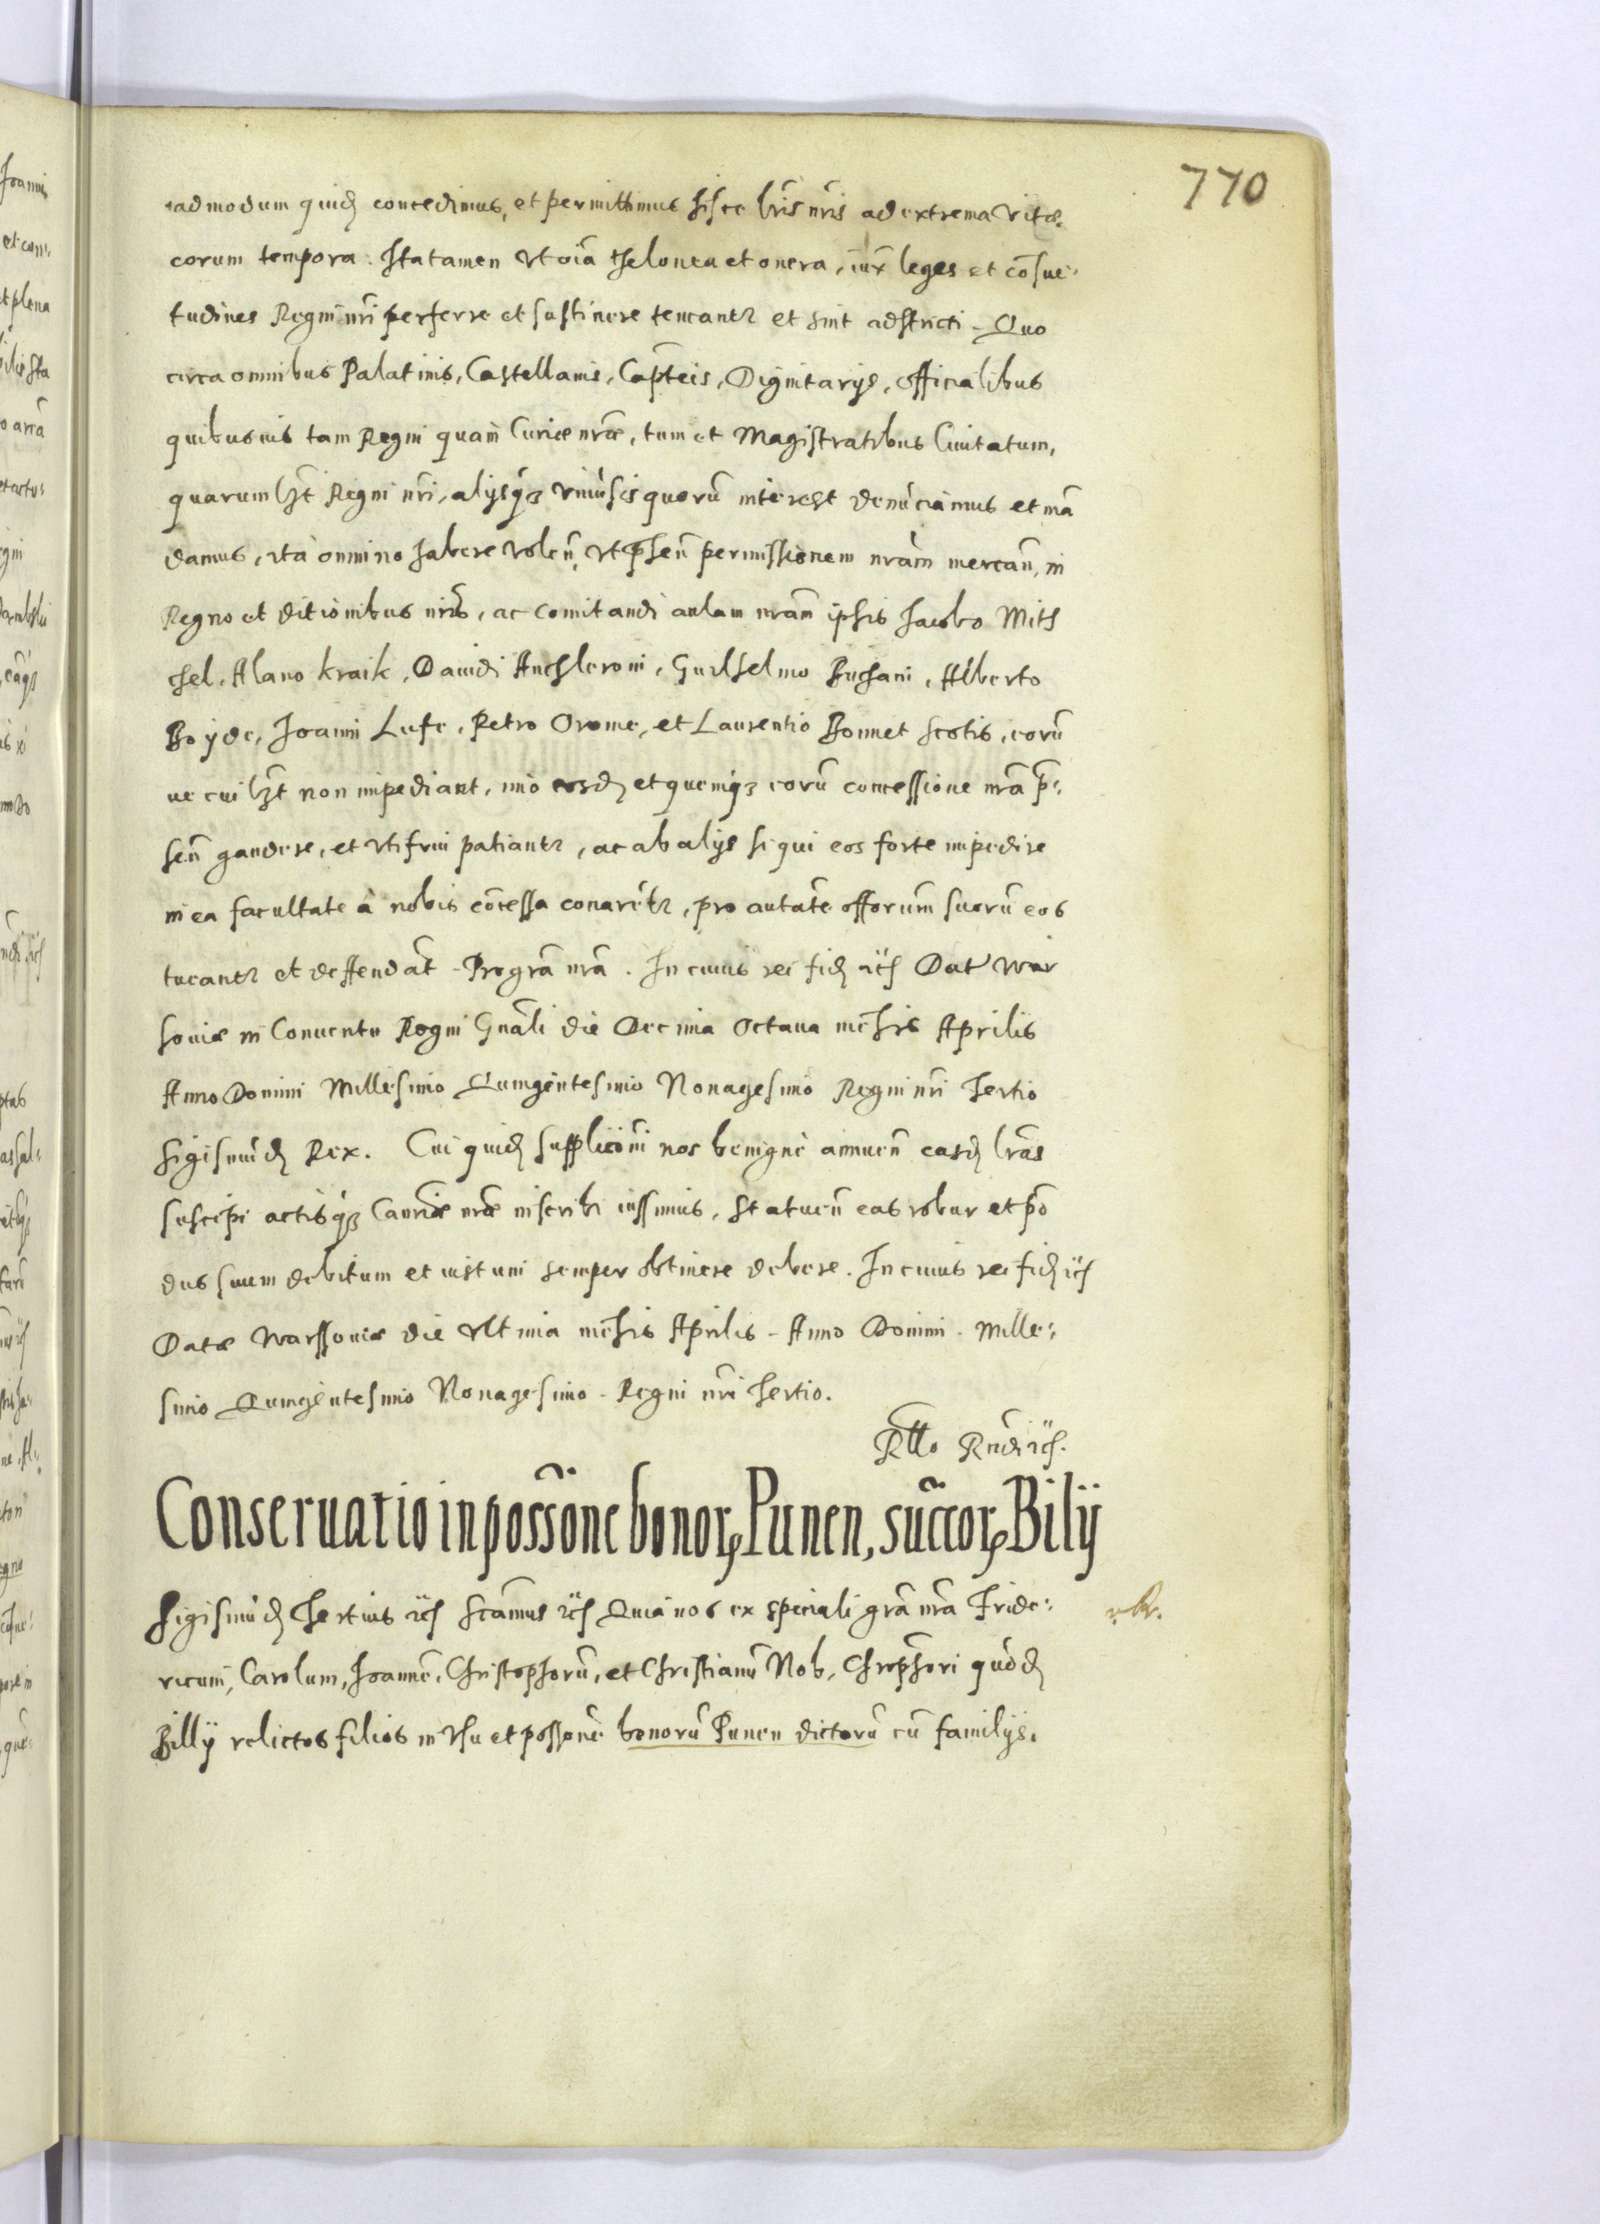 770
admodum quidē concedimus, et permittimus hisce lr̃is nr̃is ad extrema vitæ
eorum tempora. Ita tamen vt oĩa thelonea et onera, iux̃ leges et cõsue:
tudines Regni nr̃i perferre et sustinere teneantr et sint adstricti - Quo
circa omnibus Palatinis, Castellanis, Capteis, Dignitarijs, officialibus
quibusuis tam Regni quam Curiæ nr̃æ, tum et Magistratibus Ciuitatum,
quarumlȝt Regni nr̃i, alijsqȝ vniũsis quorũ interest denũciamus et mã
damus, ita omnino habere voleñ, vt p̃señ permissionem nr̃am mercañ, in
Regno et ditionibus nr̃is, ac comitandi aulam nr̃am ipsis Jacobo Mits
chel, Alano Kraik, Dauidi Anchleroni, Guilhelmo Buchani, Alberto
Boyde, Joanni Lufe, Petro Orome, et Laurentio Bonnet Scotis, eorũ
ue cuilȝt non impediant, imo eosdē et quemqȝ eorũ concessione nr̃a p̃:
señ gaudere, et vti frui patiantr, ac ab alijs si qui eos forte impedire
in ea facultate à nobis cõcessa conarẽtr, pro autãte offorum suorũ eos
tueantr et deffendãt - Pro grã nr̃a. In cuius rei fidē ꝛc̃ Dat War
souiæ in Conuentu Regni Gnãli die Decima Octaua mẽsis Aprilis
Anno Domini Millesimo Quingentesimo Nonagesimo Regni nr̃i Tertio
Sigismũdē Rex. Cui quidē supplicõni nos benignè annueñ easdē lr̃as
suscipi actisqȝ Canr̃iæ nr̃æ inscribi iussimus, Statueñ eas robur et põ
dus suum debitum et iustum semper obtinere debere. In cuius rei fidē ꝛc̃
Datæ Warssouiæ die vltima mẽsis Aprilis - Anno Domini - Mille:
simo Quingentesimo Nonagesimo - Regni nr̃i Tertio.
Rñdi ꝛc̃.
Conseruatio in possõne bonorꝫ Punen, succorꝫ Bilij
Sigismũdē Tertius ꝛc̃ Scãmus ꝛc̃ Quia nos ex speciali grã nr̃a Fride:
ricum, Carolum, Joannẽ, Christophorũ, et Christianũ Nob, Chrophori quõdē
Billij relictos filios in vsu et possõne bonorũ Punen dictorũ cũ familijs,